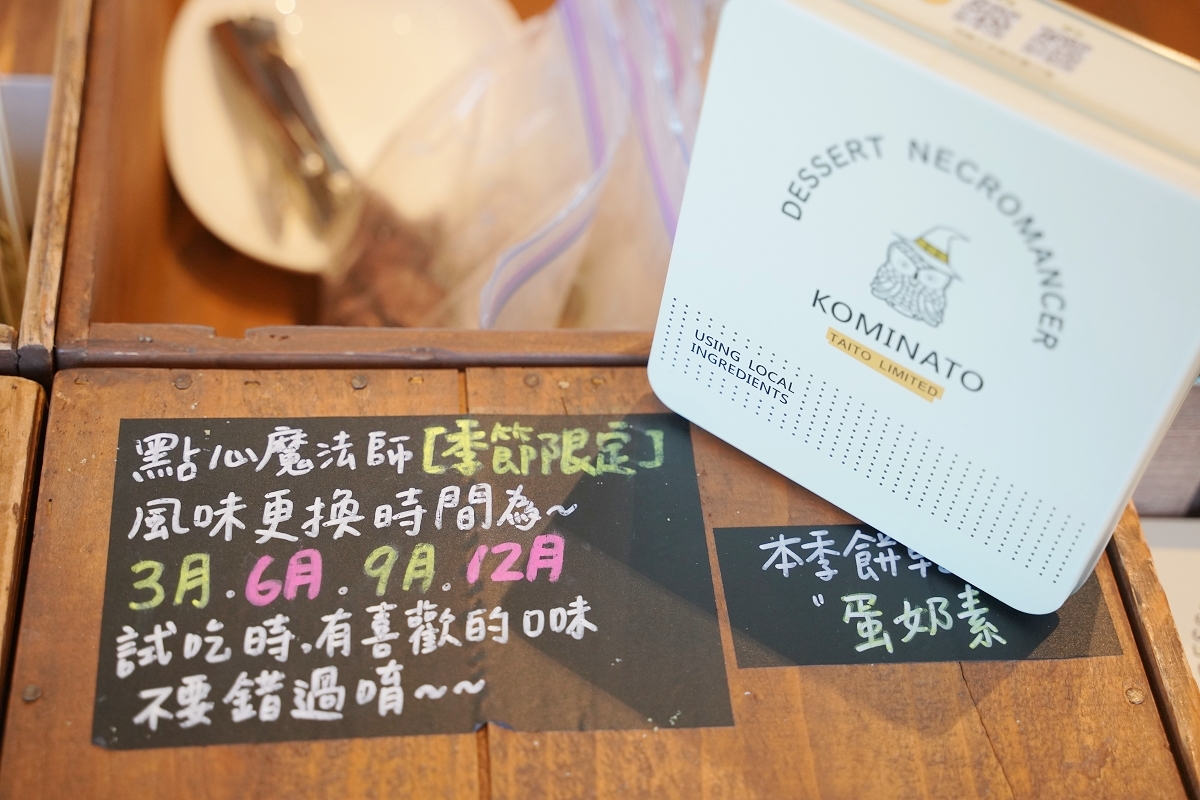 DESSERT NECROMANCER
KOMINATO
TAITO LIMITED
USING LOCAL
INGREDIENTS
點心魔法師[季節限定]
風味更換時間為~
3月.6月.9月.12月
試吃時.有喜歡的口味
不要錯過唷~~
本季餅
"蛋奶素